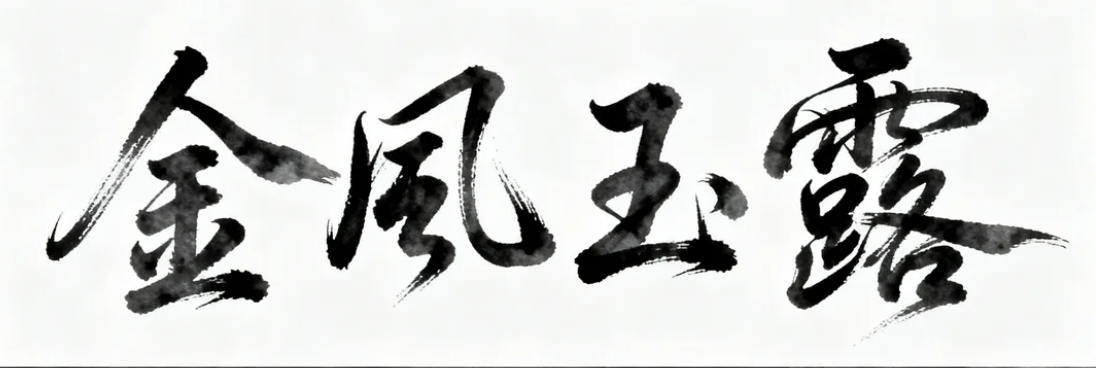 金風玉露